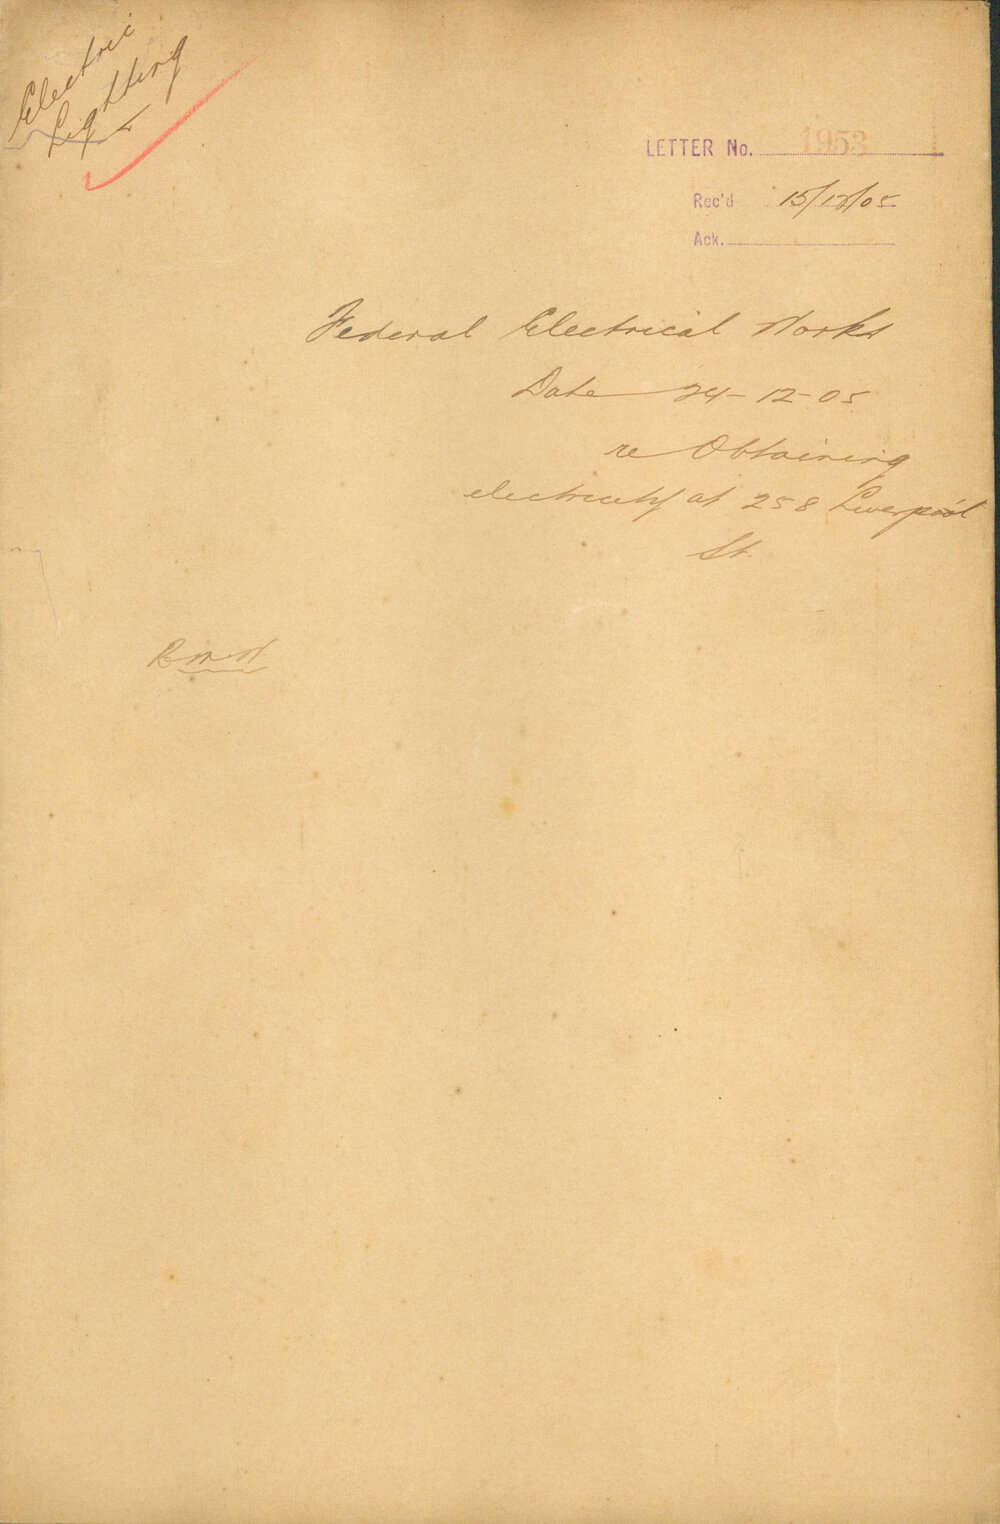 Electric
Lighting
LETTER No. 1953
Rec'd 15/12/05
Ack.
Federal Electrical Works
Date 24-12-05
re Obtaining
electricity at 258 Liverpool
St.